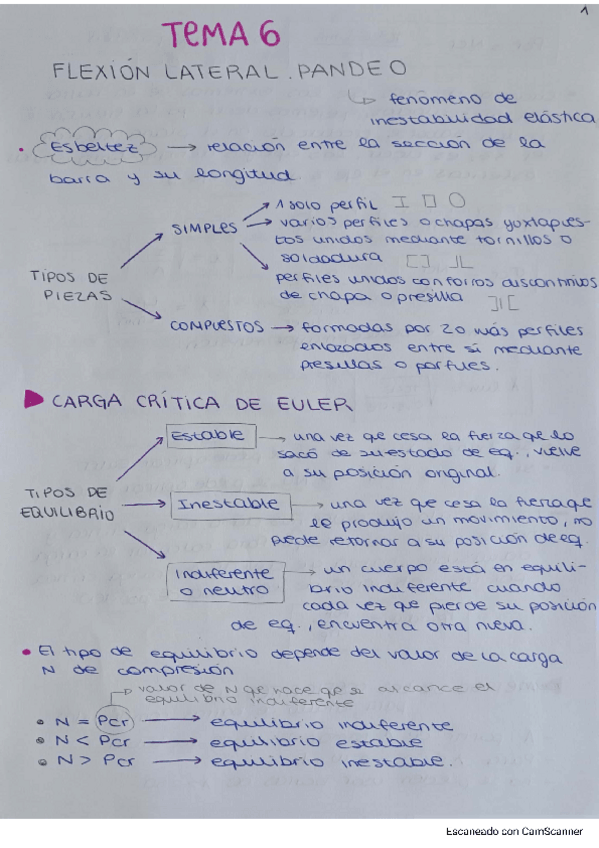 1
TEMA 6
FLEXIÓN LATERAL. PANDEO
fenómeno de
inestabilidad elástica
• Esbeltez → relación entre la sección de la
barra y su longitud.
TIPOS DE
PIEZAS
SIMPLES
1 solo perfil
varios perfiles o chapas yuxtapues-
tos unidos mediante tornillos o
soldadura
perfiles unidos con forros discontinuos
de chapa o presilla
COMPUESTOS → formadas por 2 o más perfiles
enlazados entre sí mediante
presillas o perfiles.
CARGA CRÍTICA DE EULER
TIPOS DE
EQUILIBRIO
Estable → una vez que cesa la fuerza que lo
sacó de su estado de eq., vuelve
a su posición original.
Inestable → una vez que cesa la fuerza que
le produjo un movimiento, no
puede retornar a su posición de eq.
Indiferente
o neutro
→ un cuerpo está en equili-
brio indiferente cuando
cada vez que pierde su posición
de eq., encuentra otra nueva.
• El tipo de equilibrio depende del valor de la carga
N de compresión
valor de N que hace que se alcance el
equilibrio indiferente
• N = Pcr → equilibrio indiferente
• N < Pcr → equilibrio estable
• N > Pcr → equilibrio inestable.
Escaneado con CamScanner